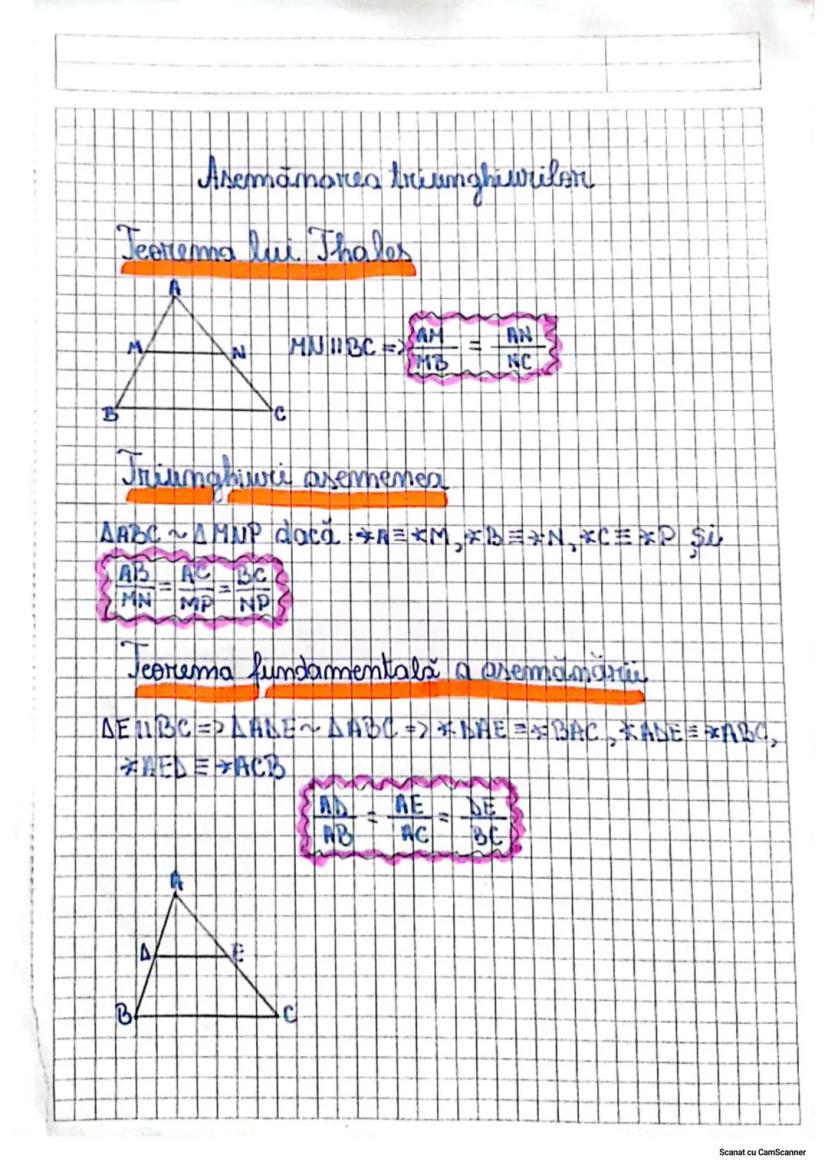 Asemănarea triunghiurilor
Teorema lui Thales
A
M N MN || BC => AM/MB = AN/NC
B C
Triunghiuri asemenea
ΔABC ~ ΔMNP dacă ∢A ≡ ∢M, ∢B ≡ ∢N, ∢C ≡ ∢P și
AB/MN = AC/MP = BC/NP
Teorema fundamentală a asemănării
DE || BC => ΔADE ~ ΔABC => ∢DAE ≡ ∢BAC, ∢ADE ≡ ∢ABC,
∢AED ≡ ∢ACB
AD/AB = AE/AC = DE/BC
A
D E
B C
Scanat cu CamScanner